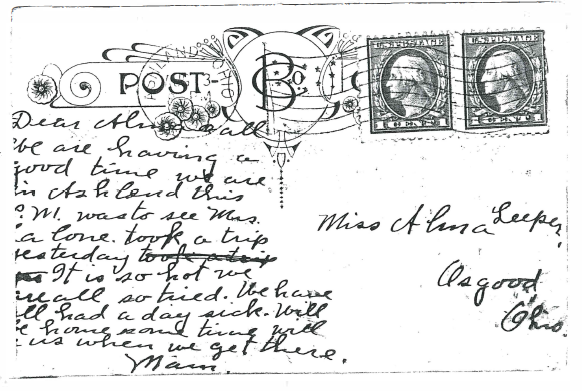 POST
ASHLAND OHIO
U.S. POSTAGE
U.S. POSTAGE
1 CENT 1
1 CENT 1
Dear Alma & all
We are having a
good time we are
in Ashlend this
P.M. was to see Mrs.
a Cone. took a trip
yesterday took a trip
It is so hot we
are all so tired. We have
all had a day sick. Will
be home some time will
us when we get there.
Mam.
Miss Alma Leeper,
Osgood,
Ohio.